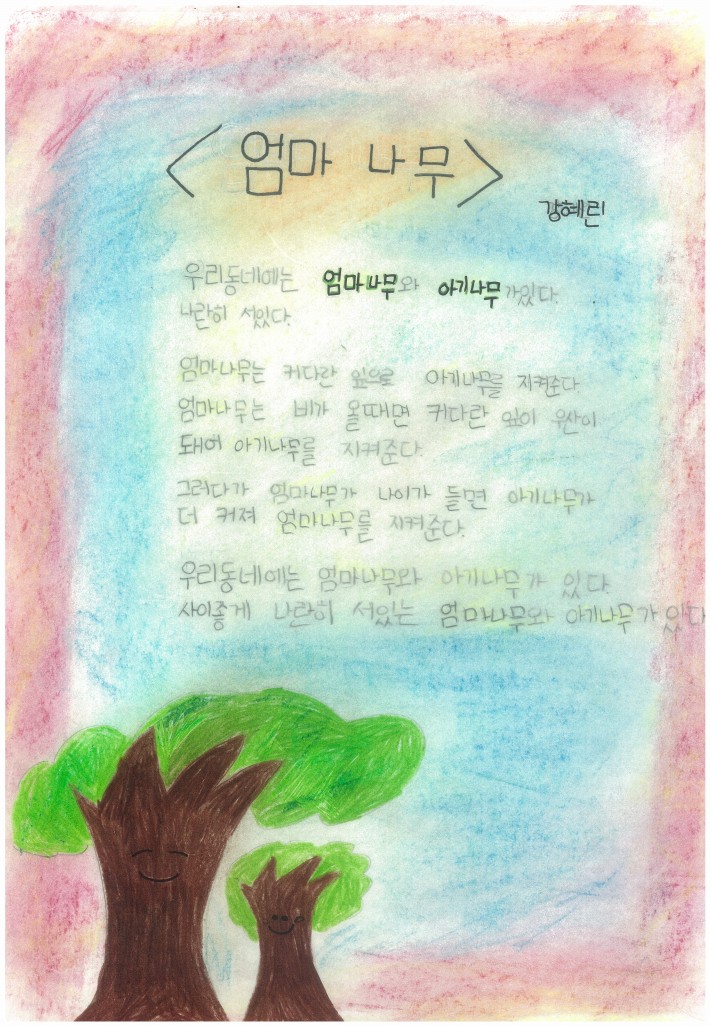 <엄마 나무>
강혜린
우리동네에는 엄마나무와 아기나무가있다.
나란히 서있다.
엄마나무는 커다란 잎으로 아기나무를 지켜준다.
엄마나무는 비가 올때면 커다란 잎이 우산이
돼어 아기나무를 지켜준다.
그러다가 엄마나무가 나이가 들면 아기나무가
더 커져 엄마나무를 지켜준다.
우리동네에는 엄마나무와 아기나무가 있다.
사이좋게 나란히 서있는 엄마나무와 아기나무가 있다